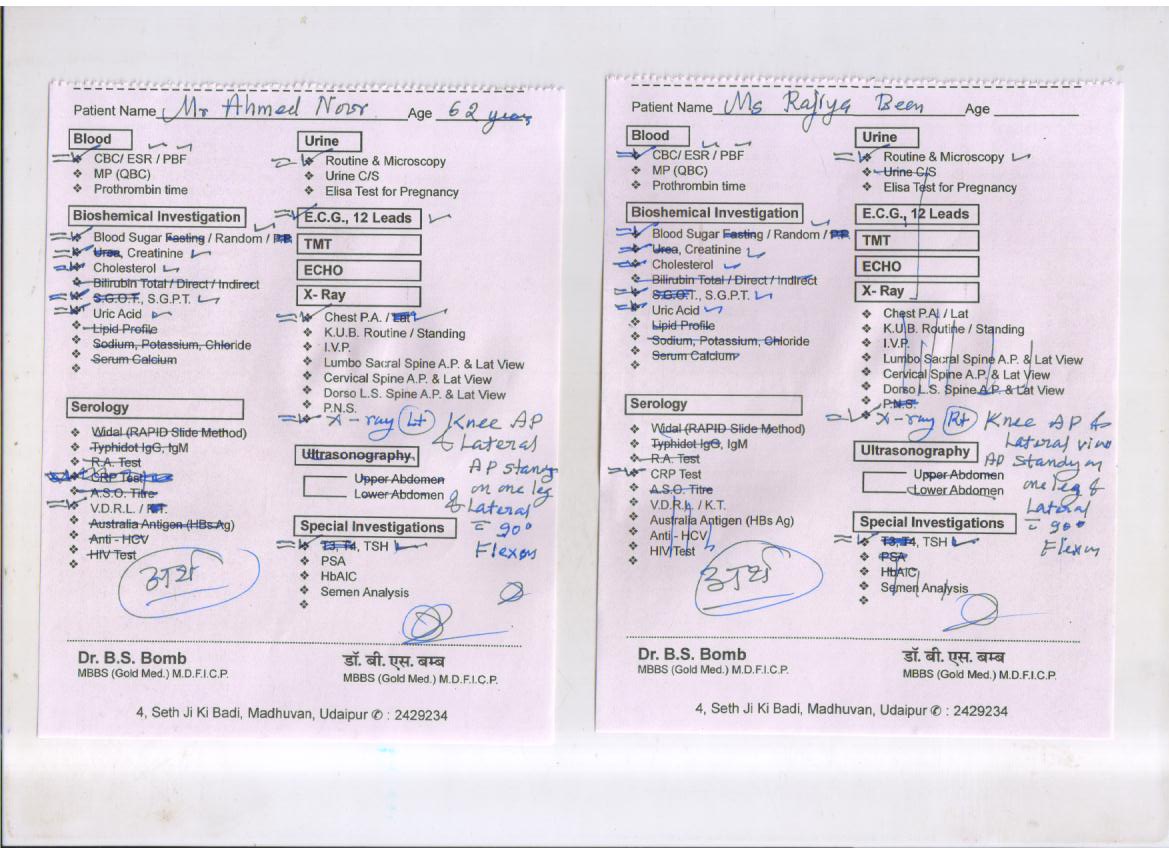 Patient Name Mr Ahmed Noor Age 62 years
Blood
CBC/ ESR / PBF
MP (QBC)
Prothrombin time
Bioshemical Investigation
Blood Sugar Fasting / Random / P.P.
Urea, Creatinine
Cholesterol
Bilirubin Total / Direct / Indirect
S.G.O.T., S.G.P.T.
Uric Acid
Lipid Profile
Sodium, Potassium, Chloride
Serum Calcium
Serology
Widal (RAPID Slide Method)
Typhidot IgG, IgM
R.A. Test
CRP Test
A.S.O. Titre
V.D.R.L. / K.T.
Australia Antigen (HBs Ag)
Anti - HCV
HIV Test
Urine
Routine & Microscopy
Urine C/S
Elisa Test for Pregnancy
E.C.G., 12 Leads
TMT
ECHO
X- Ray
Chest P.A. / Lat
K.U.B. Routine / Standing
I.V.P.
Lumbo Sacral Spine A.P. & Lat View
Cervical Spine A.P. & Lat View
Dorso L.S. Spine A.P. & Lat View
P.N.S.
X-ray Lt Knee AP
& Lateral
AP standy
on one leg
& Lateral
c 90°
Flexon
Ultrasonography
Upper Abdomen
Lower Abdomen
Special Investigations
T3, T4, TSH
PSA
HbAIC
Semen Analysis
Dr. B.S. Bomb
MBBS (Gold Med.) M.D.F.I.C.P.
डॉ. बी. एस. बम्ब
MBBS (Gold Med.) M.D.F.I.C.P.
4, Seth Ji Ki Badi, Madhuvan, Udaipur ✆ : 2429234
Patient Name Ms Rajiya Been Age
Blood
CBC/ ESR / PBF
MP (QBC)
Prothrombin time
Bioshemical Investigation
Blood Sugar Fasting / Random / P.P.
Urea, Creatinine
Cholesterol
Bilirubin Total / Direct / Indirect
S.G.O.T., S.G.P.T.
Uric Acid
Lipid Profile
Sodium, Potassium, Chloride
Serum Calcium
Serology
Widal (RAPID Slide Method)
Typhidot IgG, IgM
R.A. Test
CRP Test
A.S.O. Titre
V.D.R.L. / K.T.
Australia Antigen (HBs Ag)
Anti - HCV
HIV Test
Urine
Routine & Microscopy
Urine C/S
Elisa Test for Pregnancy
E.C.G., 12 Leads
TMT
ECHO
X- Ray
Chest P.A. / Lat
K.U.B. Routine / Standing
I.V.P.
Lumbo Sacral Spine A.P. & Lat View
Cervical Spine A.P. & Lat View
Dorso L.S. Spine A.P. & Lat View
P.N.S.
X-ray Rt Knee AP &
Lateral view
AP Standy on
one leg &
Lateral
c 90°
Flexon
Ultrasonography
Upper Abdomen
Lower Abdomen
Special Investigations
T3, T4, TSH
PSA
HbAIC
Semen Analysis
Dr. B.S. Bomb
MBBS (Gold Med.) M.D.F.I.C.P.
डॉ. बी. एस. बम्ब
MBBS (Gold Med.) M.D.F.I.C.P.
4, Seth Ji Ki Badi, Madhuvan, Udaipur ✆ : 2429234